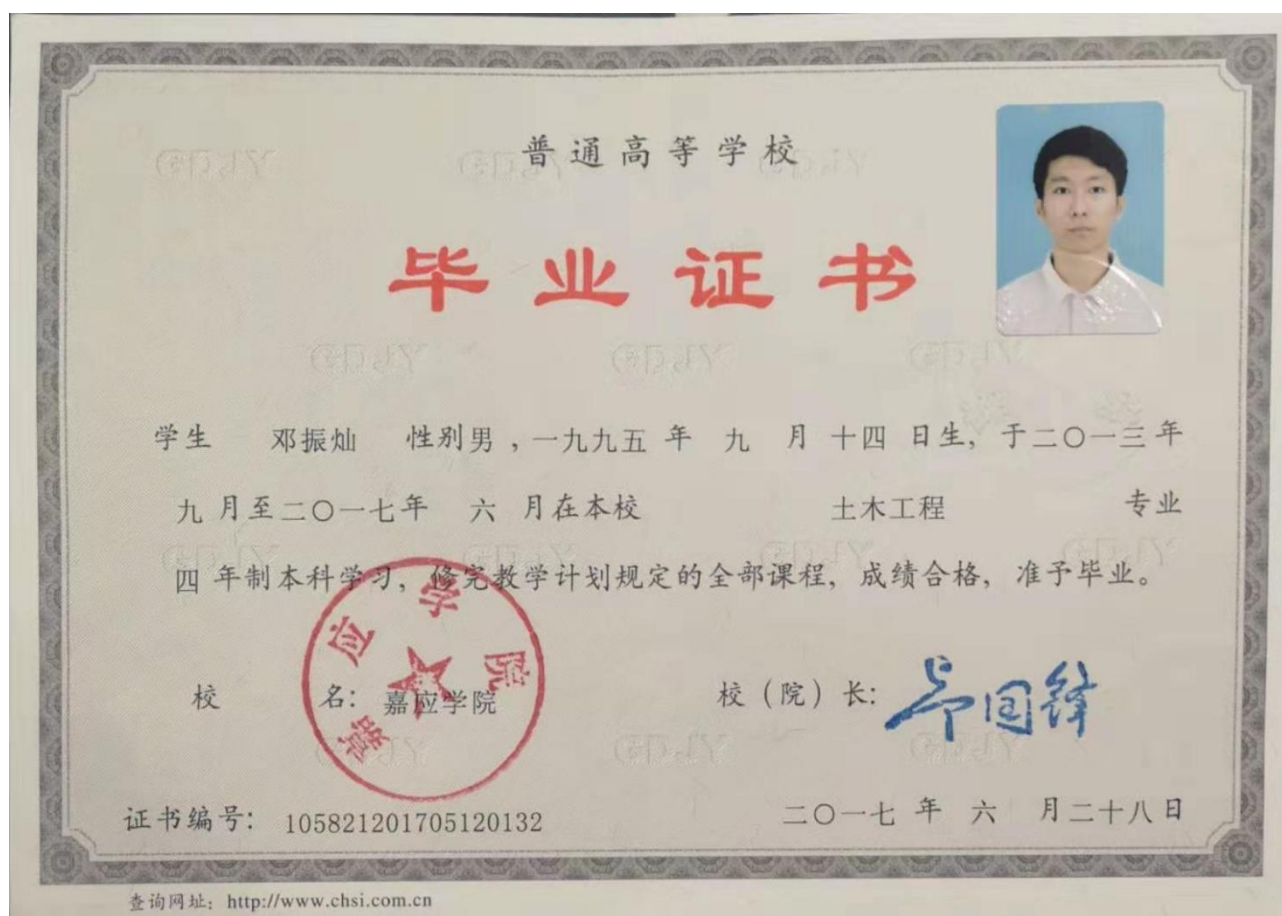 普通高等学校
毕业证书
学生 邓振灿 性别男，一九九五年 九 月 十四 日生，于二〇一三年
九月至二〇一七年 六 月在本校 土木工程 专业
四 年制本科学习，修完教学计划规定的全部课程，成绩合格，准予毕业。
校 名：嘉应学院 校（院）长：
嘉应学院
证书编号：105821201705120132 二〇一七 年 六 月二十八日
查询网址：http://www.chsi.com.cn